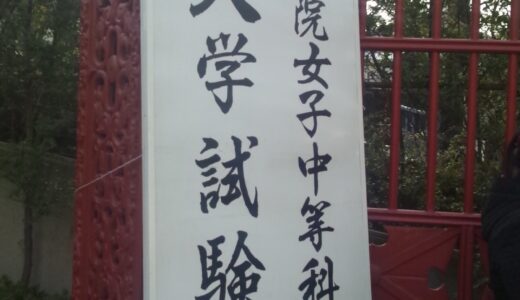 院女子中等科
入学試験